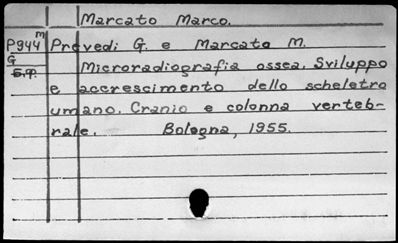 Marcato Marco.
P944m Prevedi G. e Marcato M.
G
S.P. Microradiografia ossea. Sviluppo
e accrescimento dello scheletro
umano. Cranio e colonna verteb-
rale. Bologna, 1955.